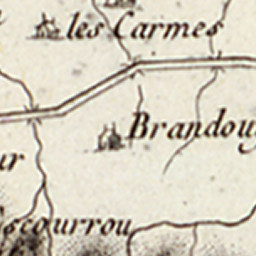 les Carmes
Brandouy
ur
scourrou